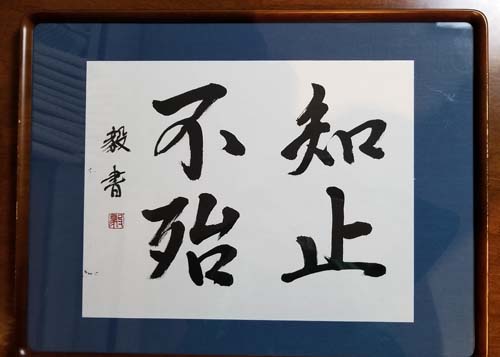 知止
不殆
毅書